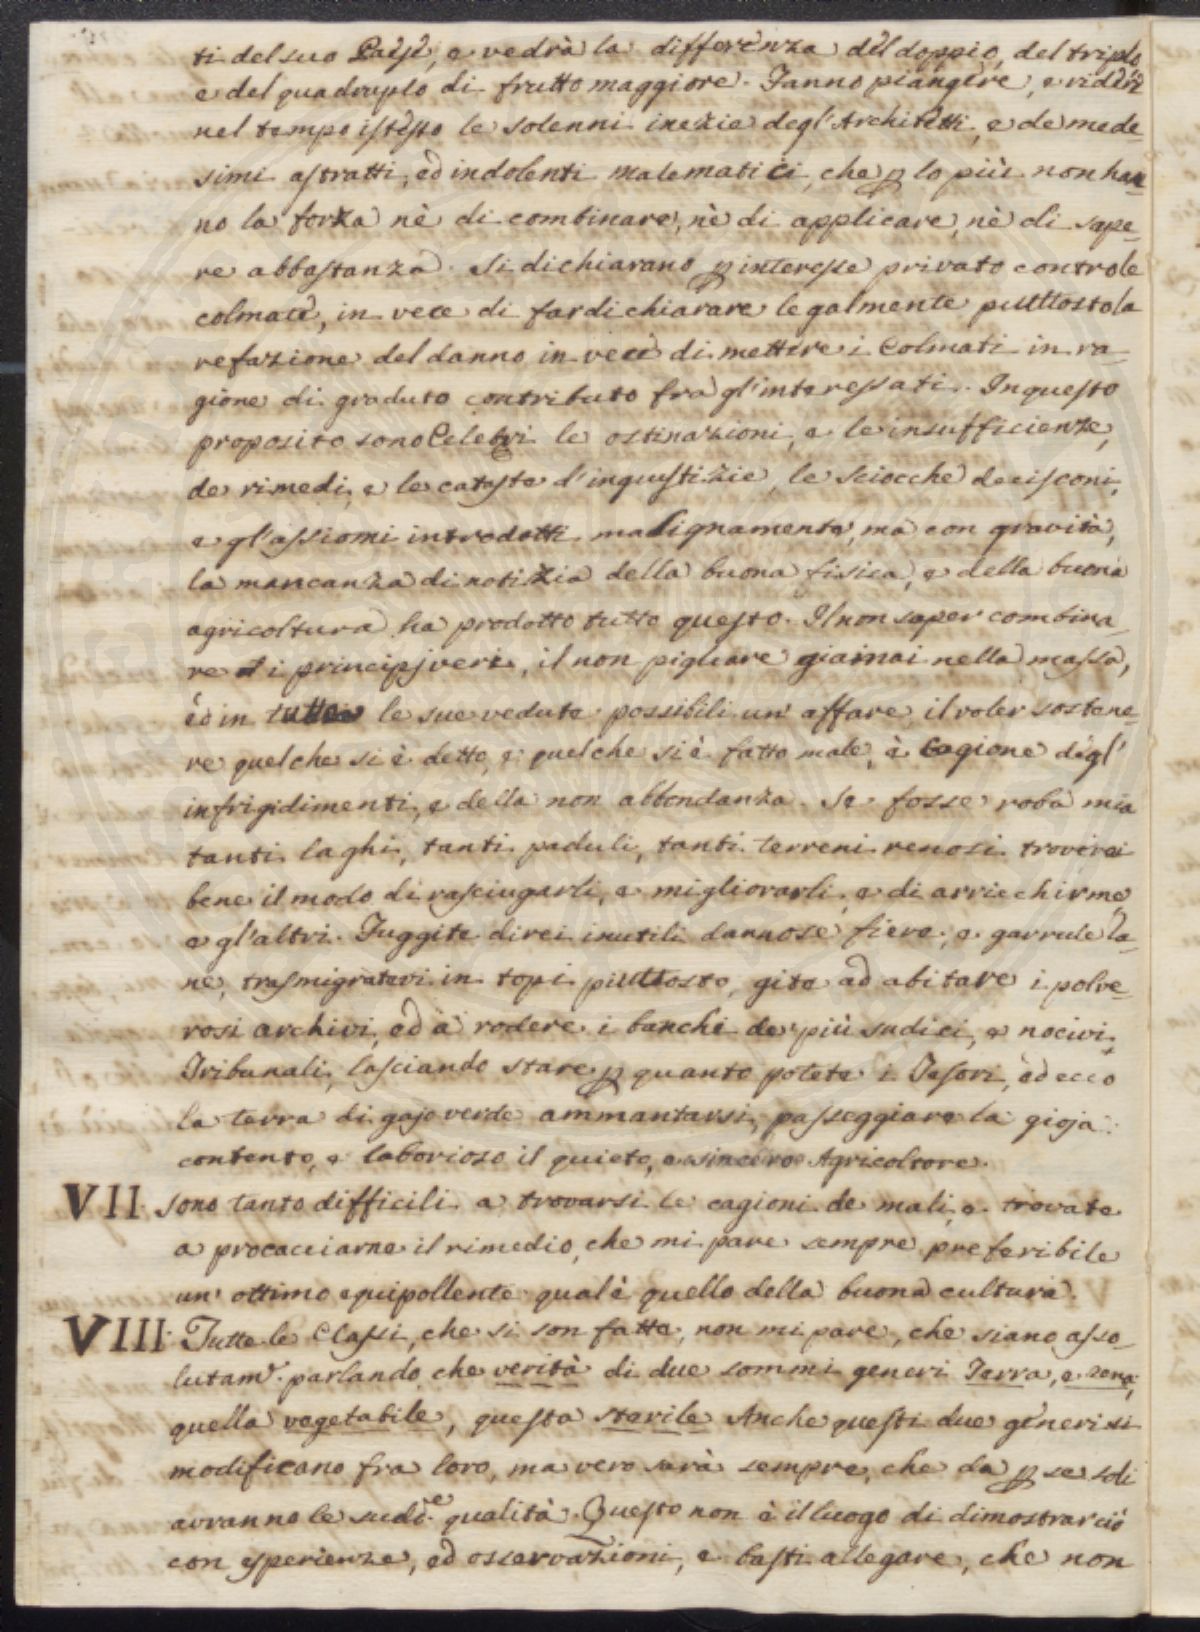 ti del suo Paese, e vedrà la differenza del doppio, del triplo
e del quadruplo di frutto maggiore. Fanno piangere, e ridere
nel tempo istesso le solenni inezie degl'Architetti, e de mede-
simi astratti, ed indolenti matematici, che p lo più non han-
no la forza nè di combinare, nè di applicare, nè di sape-
re abbastanza. Si dichiarano p interesse privato contro le
colmate, in vece di far dichiarare legalmente piuttosto la
refazione del danno in vece di mettere i Colmati in ra-
gione di graduto contributo fra gl'interessati. In questo
proposito sono Celebri le ostinazioni, e le insufficienze,
de rimedi, e le cataste d'ingiustizie, le sciocche decisioni,
e gl'assiomi introdotti malignamente, ma con gravità,
la mancanza di notizia della buona fisica, e della buona
agricoltura ha prodotto tutto questo. Il non saper combina-
re i principj veri, il non pigliare giammai nella massa,
ed in tutte le sue vedute possibili un' affare, il voler sostene-
re quel che si è detto, e quel che si è fatto male, è Cagione degl'
infrigidimenti, e della non abbondanza. Se fosse roba mia
tanti laghi, tanti paduli, tanti terreni renosi troverei
bene il modo di rasciugarli, e migliorarli, e di arricchirme,
e gl'altri. Fuggite direi inutili dannose fiere, e garrule la-
ne, trasmigratevi in topi piuttosto, gite ad abitare i polve-
rosi archivi, ed a rodere i banchi de più sudici, e nocivi
Tribunali, lasciando stare p quanto potete i Tesori, ed ecco
la terra di gajo verde ammantarsi, passeggiare la gioja
contento, e laborioso il quieto, e sincero Agricoltore.
VII. Sono tanto difficili a trovarsi le cagioni de mali, e trovate
a procacciarne il rimedio, che mi pare sempre preferibile
un' ottimo equipollente qual è quello della buona cultura.
VIII. Tutte le Classi, che si son fatte, non mi pare, che siano asso-
lutam.e parlando che verità di due sommi generi Terra, e rena,
quella vegetabile, questa sterile. Anche questi due generi si
modificano fra loro, ma vero sarà sempre, che da p se soli
avranno le sudd.e qualità. Questo non è il luogo di dimostrar ciò
con esperienze, ed osservazioni, e basti allegare, che non